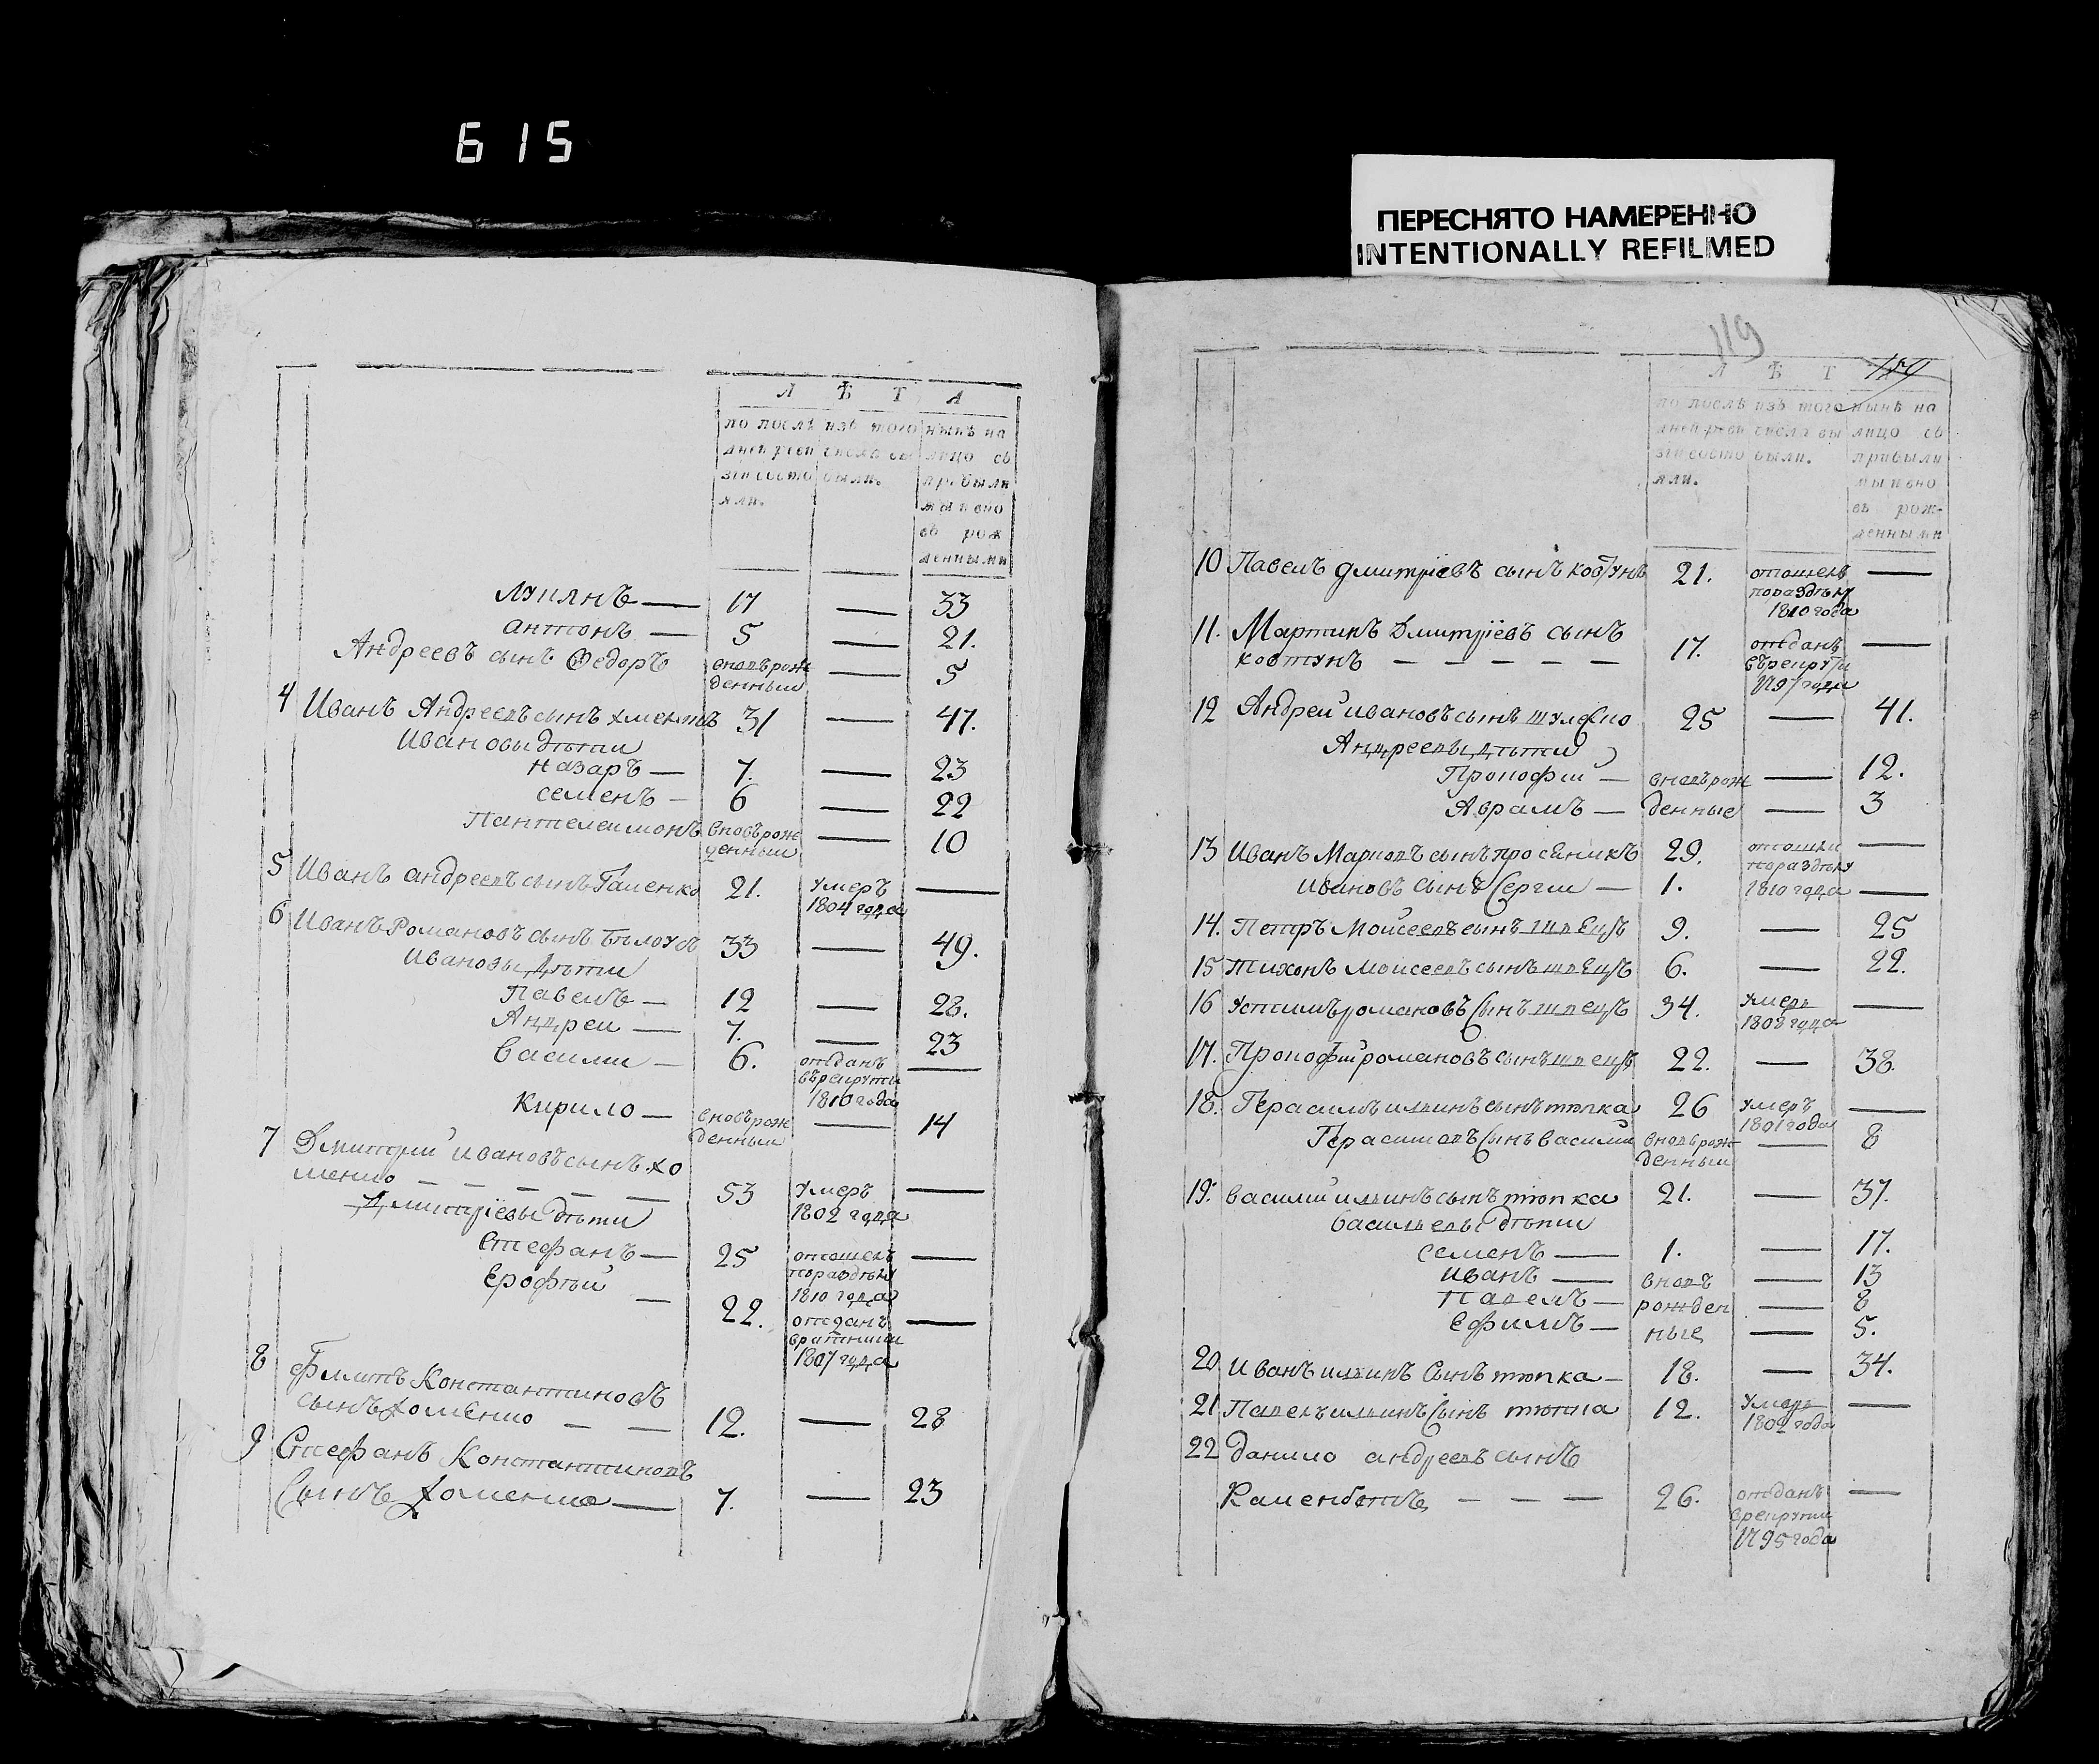 615
ПЕРЕСНЯТО НАМЕРЕННО
INTENTIONALLY REFILMED
Л Ѣ Т А
по послѣ изъ того нынѣ на
дней реви числа вы лицо съ
зіи состо были. прибыли
яли. ми и вно
въ рож
денными
Лукянъ — 17 — 33
антонъ — 5 — 21.
Андреевъ сынъ Федоръ вновърож — 5
денныи
4 Иванъ Андреевъ сынъ 31 — 47.
Ивановы дѣти
назаръ — 7. — 23
семенъ — 6 — 22
Пантелеимонъ вновърож — 10
денныи
5 Иванъ андреевъ сынъ Гаменко 21. умеръ —
1804 года
6 Иванъ Романовъ сынъ Бѣлоусъ 33 — 49.
Ивановы дѣти
Павелъ — 12 — 28.
Андреи — 7. — 23
Василии — 6. отъданъ —
въ рекруты
1810 года
Кирило — вновърож — 14
денныи
7 Дмитрий ивановъ сынъ хо
менко — — — — — 53 умеръ —
1802 года
Дмитріевы дѣти
Стефанъ — 25 отошелъ —
пораздѣлу
1810 года
Ерофѣй — 22. отданъ —
1807 года
8 Филипъ Константиновъ
сынъ хоменко — — 12. — 28
9 Стефанъ Константиновъ
Сынъ Хоменко — 7. — 23
119
159
Л Ѣ Т А
по послѣ изъ того нынѣ на
дней реви числа вы лицо съ
зіи состо были. прибыли
яли. ми и вно
въ рож-
денными
10 Павелъ дмитріевъ сынъ ковтунъ 21. отошелъ —
пораздѣлу
1810 года
11. Мартинъ Дмитріевъ сынъ
ковтунъ — — — — — 17. отъданъ —
въ рекруты
1797 года
12 Андрей ивановъ сынъ 25 — 41.
Андреевы дѣти
Прокофии — вновърож — 12.
Аврамъ — денные — 3
13 Иванъ Марковъ сынъ просяникъ 29. отошли —
пораздѣлу
Ивановъ Сынъ Сергии — 1. 1810 года —
14. Петръ Моисеевъ сынъ швецъ 9. — 25
15 тихонъ моисеевъ сынъ швецъ 6. — 22.
16 Устимъ романовъ Сынъ швецъ 34. умеръ —
1808 года
17. Прокофий романовъ сынъ швецъ 22. — 38.
18. Герасимъ ильинъ сынъ тюпка 26 умеръ —
1801 года
Герасимовъ Сынъ василий вновърож — 8
денныи
19. василий ильинъ сынъ тюпка 21. — 37.
васильевы дѣти
семенъ — 1. — 17.
иванъ — вновъ — 13
Павелъ — рожден — 8
Ефимъ — ные — 5.
20 Иванъ ильинъ Сынъ тюпка — 18. — 34.
21 Павелъ ильинъ Сынъ тюпка 12. умеръ —
1802 года
22 данило андреевъ сынъ
— — — 26. отъданъ —
врекруты
1795 года